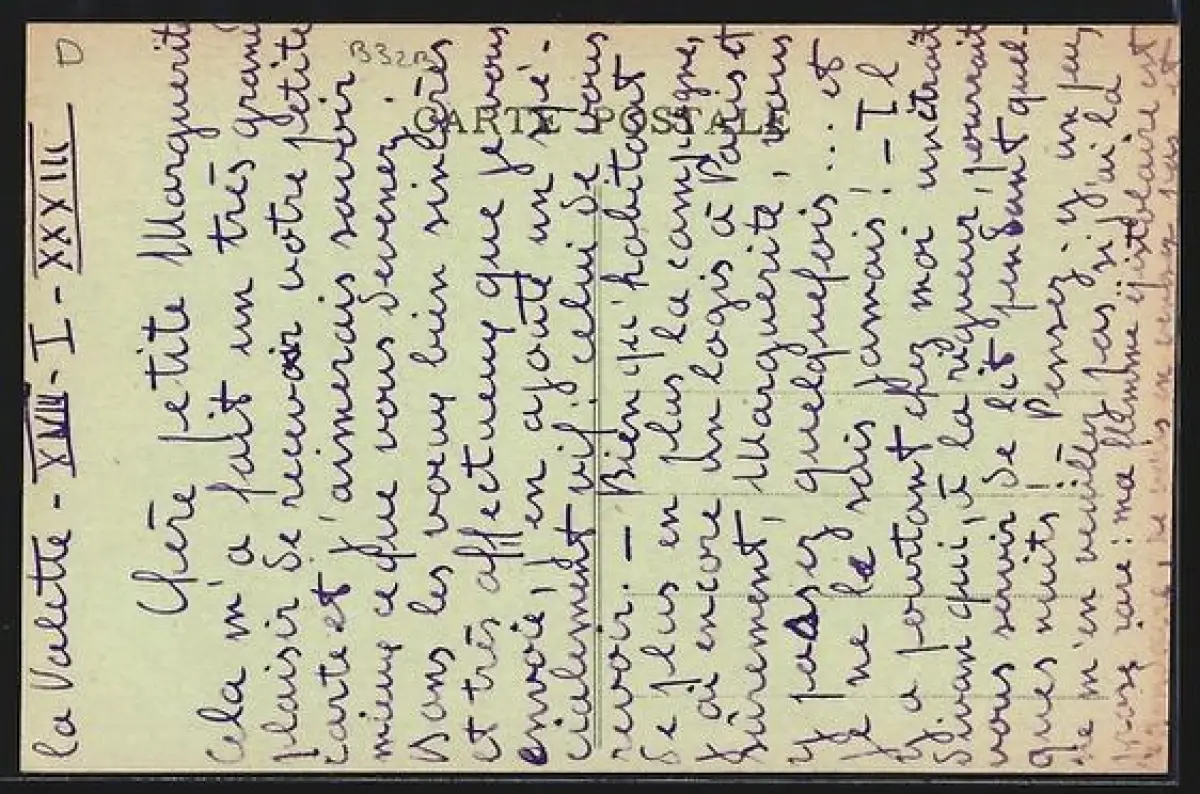 la Valette - XVIII - I - XXXIII
D
B32B
CARTE POSTALE
Chère petite Marguerite
Cela m'a fait un très grand
plaisir de recevoir votre petite
carte et j'aimerais savoir
mieux ce que vous devenez.
Dans les voeux bien sincères
et très affectueux que je vous
envoie, j'en ajoute un spé-
cialement vif: celui de vous
revoir. - Bien qu'habitant
de plus en plus la campagne,
j'ai encore un logis à Paris et
sûrement, Marguerite, vous
y passez quelquefois... et
je ne le sais jamais! - Il
y a pourtant chez moi un étroit
divan qui, à la rigueur, pourrait
vous servir de lit pendant quel-
ques nuits! Pensez-y un peu,
ne m'en veuillez pas si j'ai la
rare: ma flemme épistolaire est